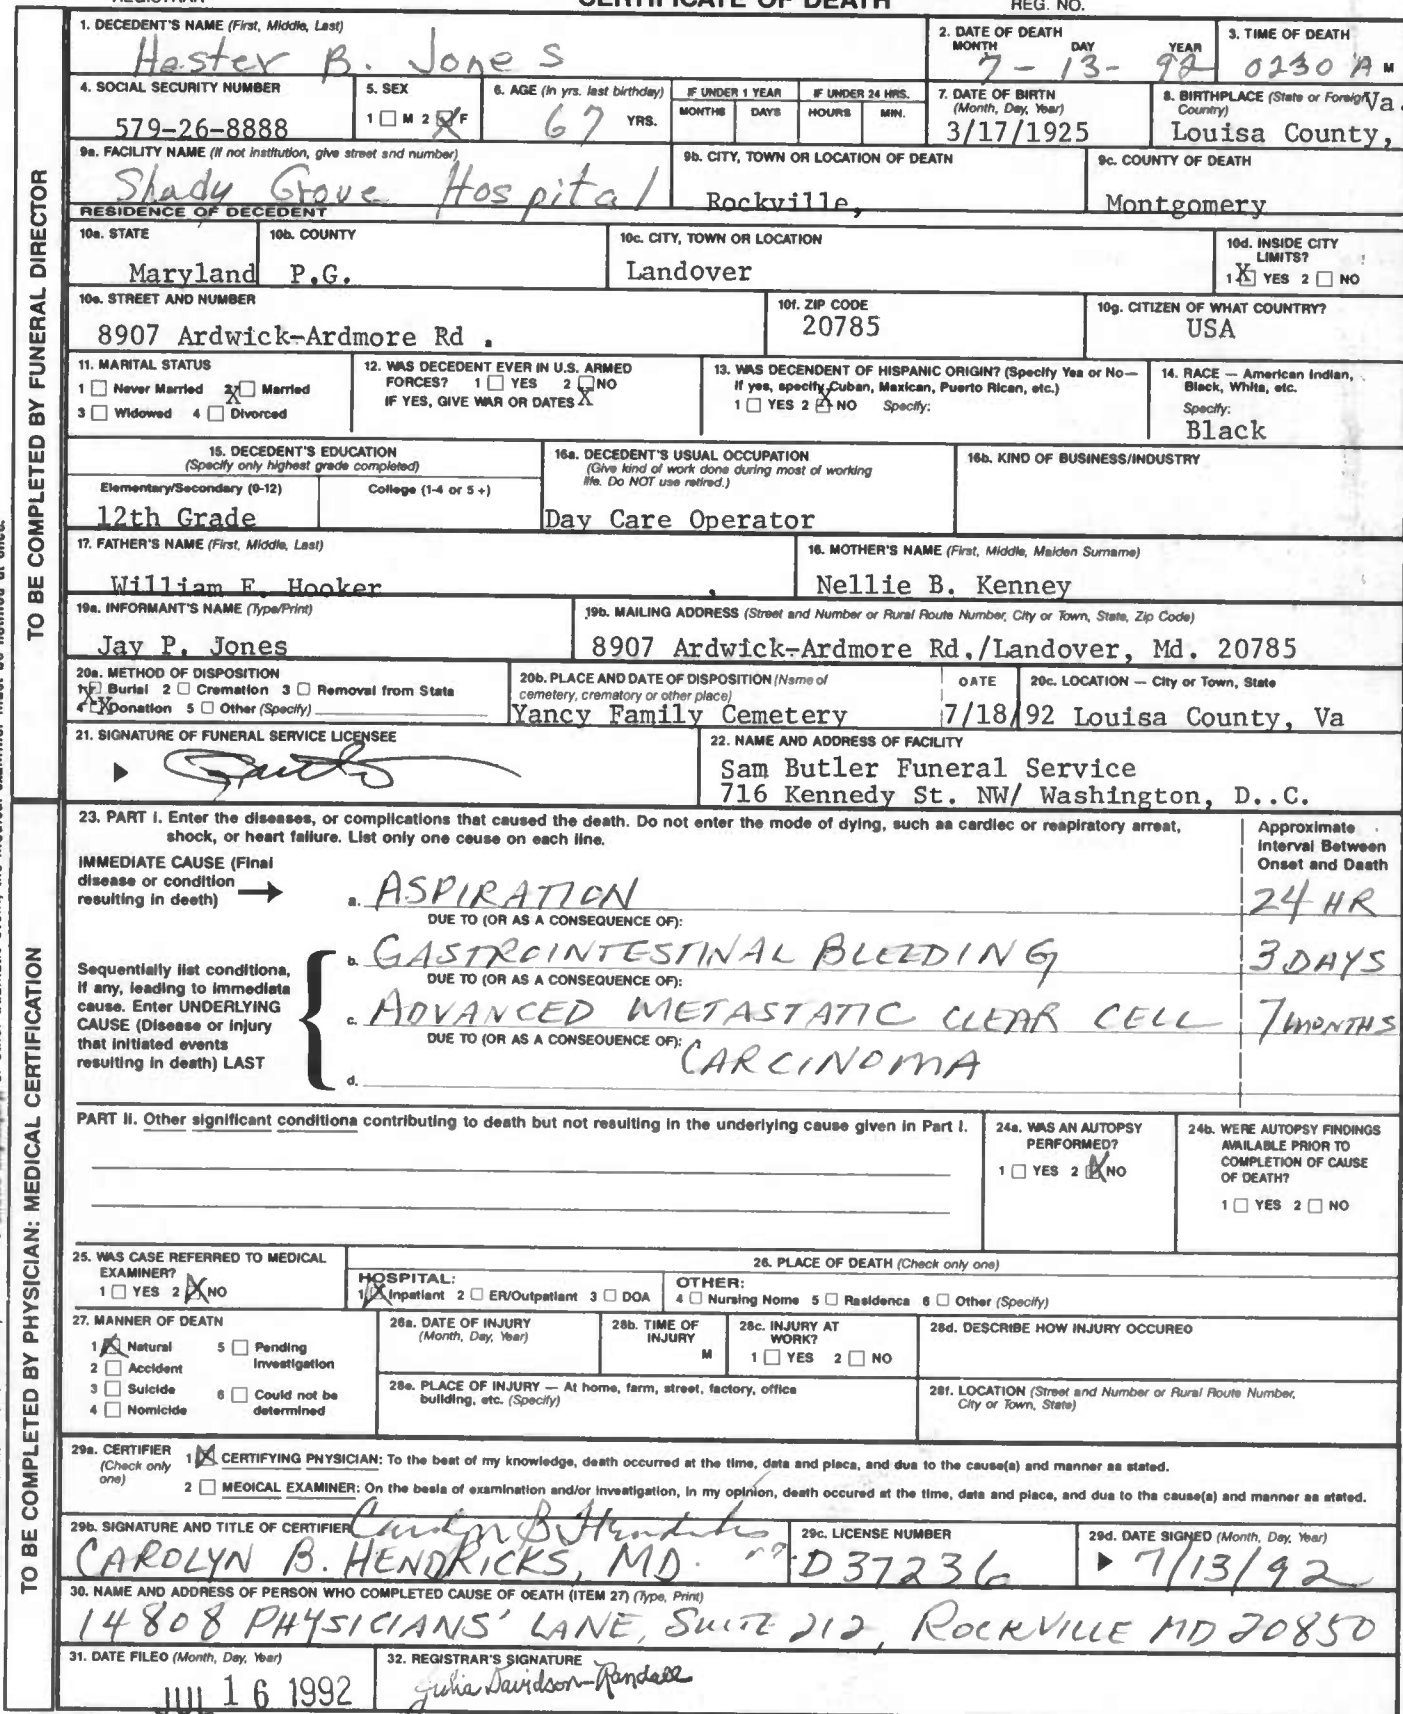 CERTIFICATE OF DEATH
REGISTRAR
REG. NO.
TO BE COMPLETED BY FUNERAL DIRECTOR
1. DECEDENT'S NAME (First, Middle, Last)
Hester B. Jones
2. DATE OF DEATH
MONTH DAY YEAR
7 - 13 - 92
3. TIME OF DEATH
0230 A M
4. SOCIAL SECURITY NUMBER
579-26-8888
5. SEX
1 M 2 X F
6. AGE (In yrs. last birthday)
67 YRS.
IF UNDER 1 YEAR
MONTHS DAYS
IF UNDER 24 HRS.
HOURS MIN.
7. DATE OF BIRTH
(Month, Day, Year)
3/17/1925
8. BIRTHPLACE (State or Foreign Country)
Va.
Louisa County,
9a. FACILITY NAME (If not institution, give street snd number)
Shady Grove Hospital
9b. CITY, TOWN OR LOCATION OF DEATH
Rockville,
9c. COUNTY OF DEATH
Montgomery
RESIDENCE OF DECEDENT
10a. STATE
Maryland
10b. COUNTY
P.G.
10c. CITY, TOWN OR LOCATION
Landover
10d. INSIDE CITY
LIMITS?
1 X YES 2 NO
10e. STREET AND NUMBER
8907 Ardwick-Ardmore Rd .
10f. ZIP CODE
20785
10g. CITIZEN OF WHAT COUNTRY?
USA
11. MARITAL STATUS
1 Never Married 2 X Married
3 Widowed 4 Divorced
12. WAS DECEDENT EVER IN U.S. ARMED
FORCES? 1 YES 2 NO
IF YES, GIVE WAR OR DATES X
13. WAS DECENDENT OF HISPANIC ORIGIN? (Specify Yes or No—
If yes, specify Cuban, Mexican, Puerto Rican, etc.)
1 YES 2 X NO Specify:
14. RACE — American Indian,
Black, White, etc.
Specify:
Black
15. DECEDENT'S EDUCATION
(Specify only highest grade completed)
Elementary/Secondary (0-12) College (1-4 or 5 +)
12th Grade
16a. DECEDENT'S USUAL OCCUPATION
(Give kind of work done during most of working
life. Do NOT use retired.)
Day Care Operator
16b. KIND OF BUSINESS/INDUSTRY
17. FATHER'S NAME (First, Middle, Last)
William F. Hooker ,
16. MOTHER'S NAME (First, Middle, Maiden Surname)
Nellie B. Kenney
19a. INFORMANT'S NAME (Type/Print)
Jay P. Jones
19b. MAILING ADDRESS (Street and Number or Rural Route Number, City or Town, State, Zip Code)
8907 Ardwick-Ardmore Rd./Landover, Md. 20785
20a. METHOD OF DISPOSITION
1 X Burial 2 Cremation 3 Removal from State
4 X Donation 5 Other (Specify)
20b. PLACE AND DATE OF DISPOSITION (Name of
cemetery, crematory or other place)
Yancy Family Cemetery
DATE
7/18/92
20c. LOCATION — City or Town, State
Louisa County, Va
21. SIGNATURE OF FUNERAL SERVICE LICENSEE
22. NAME AND ADDRESS OF FACILITY
Sam Butler Funeral Service
716 Kennedy St. NW/ Washington, D..C.
TO BE COMPLETED BY PHYSICIAN: MEDICAL CERTIFICATION
23. PART I. Enter the diseases, or complications that caused the death. Do not enter the mode of dying, such as cardiec or reapiratory arreat,
shock, or heart failure. List only one ceuse on each line.
Approximate
Interval Between
Onset and Daath
IMMEDIATE CAUSE (Final
disease or condition
resulting in deeth)
a. ASPIRATION 24 HR
DUE TO (OR AS A CONSEQUENCE OF):
b. GASTROINTESTINAL BLEEDING 3 DAYS
DUE TO (OR AS A CONSEQUENCE OF):
c. ADVANCED METASTATIC CLEAR CELL 7 MONTHS
DUE TO (OR AS A CONSEQUENCE OF):
CARCINOMA
d.
Sequentially list conditiona,
if any, leading to immediata
cause. Enter UNDERLYING
CAUSE (Disease or injury
that initiated events
resulting in death) LAST
PART II. Other significant conditiona contributing to death but not resulting in the underlying cause given in Part I.
24a. WAS AN AUTOPSY
PERFORMED?
1 YES 2 X NO
24b. WERE AUTOPSY FINDINGS
AVAILABLE PRIOR TO
COMPLETION OF CAUSE
OF DEATH?
1 YES 2 NO
25. WAS CASE REFERRED TO MEDICAL
EXAMINER?
1 YES 2 X NO
26. PLACE OF DEATH (Check only one)
HOSPITAL:
1 X Inpatiant 2 ER/Outpatiant 3 DOA
OTHER:
4 Nursing Nome 5 Rasidenca 6 Other (Specify)
27. MANNER OF DEATH
1 X Natural 5 Pending
Investigation
2 Accident
3 Suicide 6 Could not be
determined
4 Nomicide
26a. DATE OF INJURY
(Month, Day, Year)
28b. TIME OF
INJURY
M
28c. INJURY AT
WORK?
1 YES 2 NO
28d. DESCRIBE HOW INJURY OCCUREO
28e. PLACE OF INJURY — At home, farm, street, factory, office
building, etc. (Specify)
28f. LOCATION (Street and Number or Rural Route Number,
City or Town, State)
29a. CERTIFIER
(Check only
one)
1 X CERTIFYING PNYSICIAN: To the beat of my knowledge, death occurred at the tíme, data and placa, and dua to the cause(a) and manner aa stated.
2 MEOICAL EXAMINER: On the besla of examination and/or investigation, In my opinion, death occured at the tIme, data and place, and due to tha cause(a) and manner as atated.
29b. SIGNATURE AND TITLE OF CERTIFIER
Carolyn B. Hendricks
CAROLYN B. HENDRICKS, MD.
29c. LICENSE NUMBER
D37236
29d. DATE SIGNED (Month, Day, Year)
7/13/92
30. NAME AND ADDRESS OF PERSON WHO COMPLETED CAUSE OF OEATH (ITEM 27) (Type, Print)
14808 PHYSICIANS' LANE, SUITE 212, ROCKVILLE MD 20850
31. DATE FILEO (Month, Day, Year)
JUL 16 1992
32. REGISTRAR'S SIGNATURE
Julia Davidson-Randall